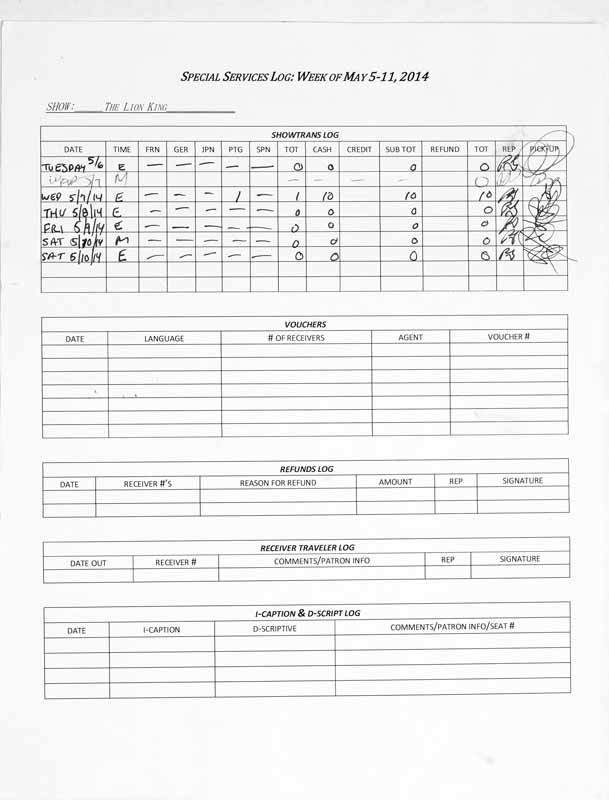 SPECIAL SERVICES LOG: WEEK OF MAY 5-11, 2014
SHOW: THE LION KING
SHOWTRANS LOG
DATE TIME FRN GER JPN PTG SPN TOT CASH CREDIT SUB TOT REFUND TOT REP PICK UP
TUESDAY 5/6 E — — — — — 0 0 0 0
WED 5/7 M — — — 0
WED 5/7/14 E — — — 1 — 1 10 10 10
THU 5/8/14 E — — — — — 0 0 0 0
FRI 5/9/14 E — — — — — 0 0 0 0
SAT 5/10/14 M — — — — — 0 0 0 0
SAT 5/10/14 E — — — — — 0 0 0 0
VOUCHERS
DATE LANGUAGE # OF RECEIVERS AGENT VOUCHER #
REFUNDS LOG
DATE RECEIVER #'S REASON FOR REFUND AMOUNT REP SIGNATURE
RECEIVER TRAVELER LOG
DATE OUT RECEIVER # COMMENTS/PATRON INFO REP SIGNATURE
I-CAPTION & D-SCRIPT LOG
DATE I-CAPTION D-SCRIPTIVE COMMENTS/PATRON INFO/SEAT #